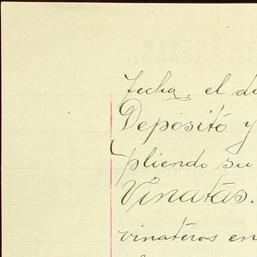 fecha, el d
Depósitó y
pliendo su
Vinatas.
vinateros en